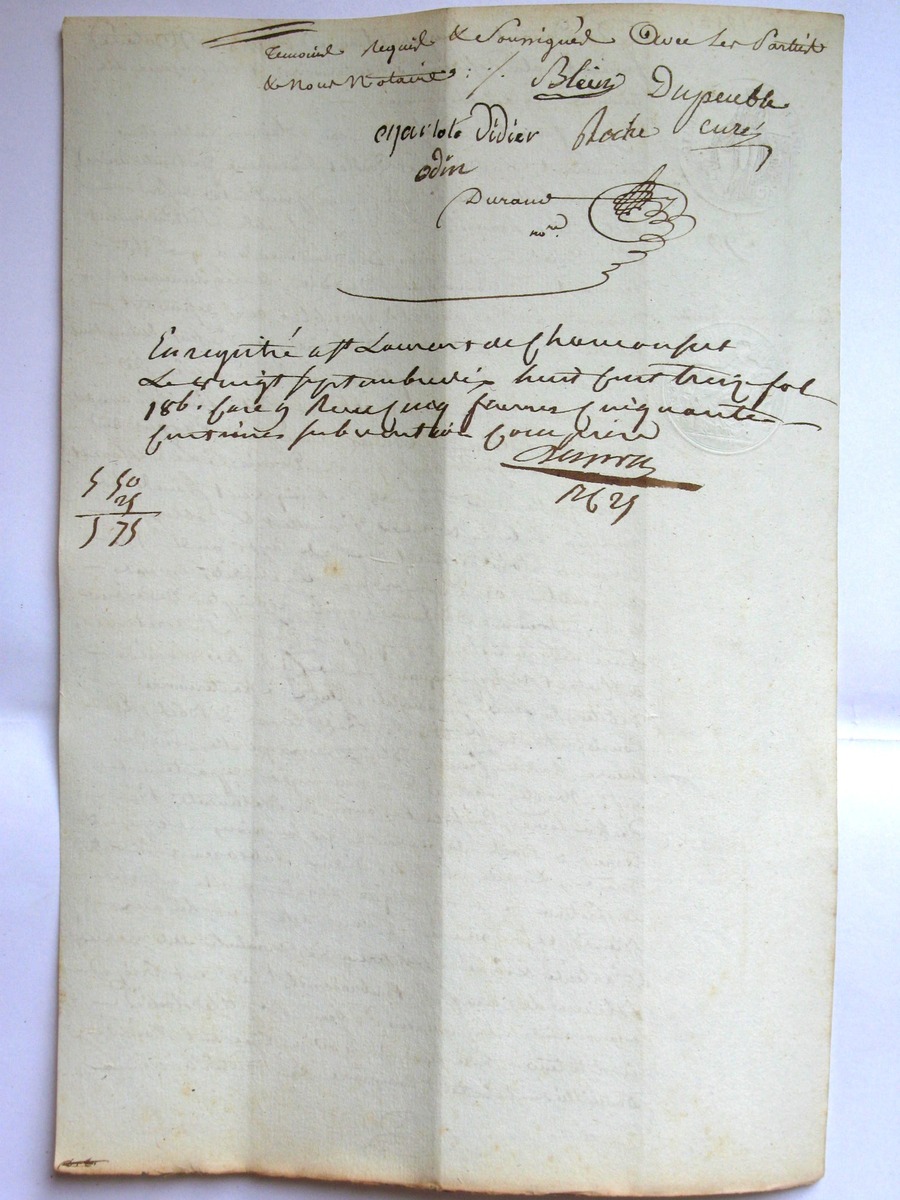 Temoins requis & Soussignés Avec Les Parties
& Nous Notaire ./.
Blein Dupeuble
Charlote Didier Roche curé
Odin
Durand
nore
Enregistré a st Laurent de Chamousset
Le vingt septembre dix huit cent treize fol
186. Reçu cinq francs Cinquante
Centimes subvention
5 50
25
5 75